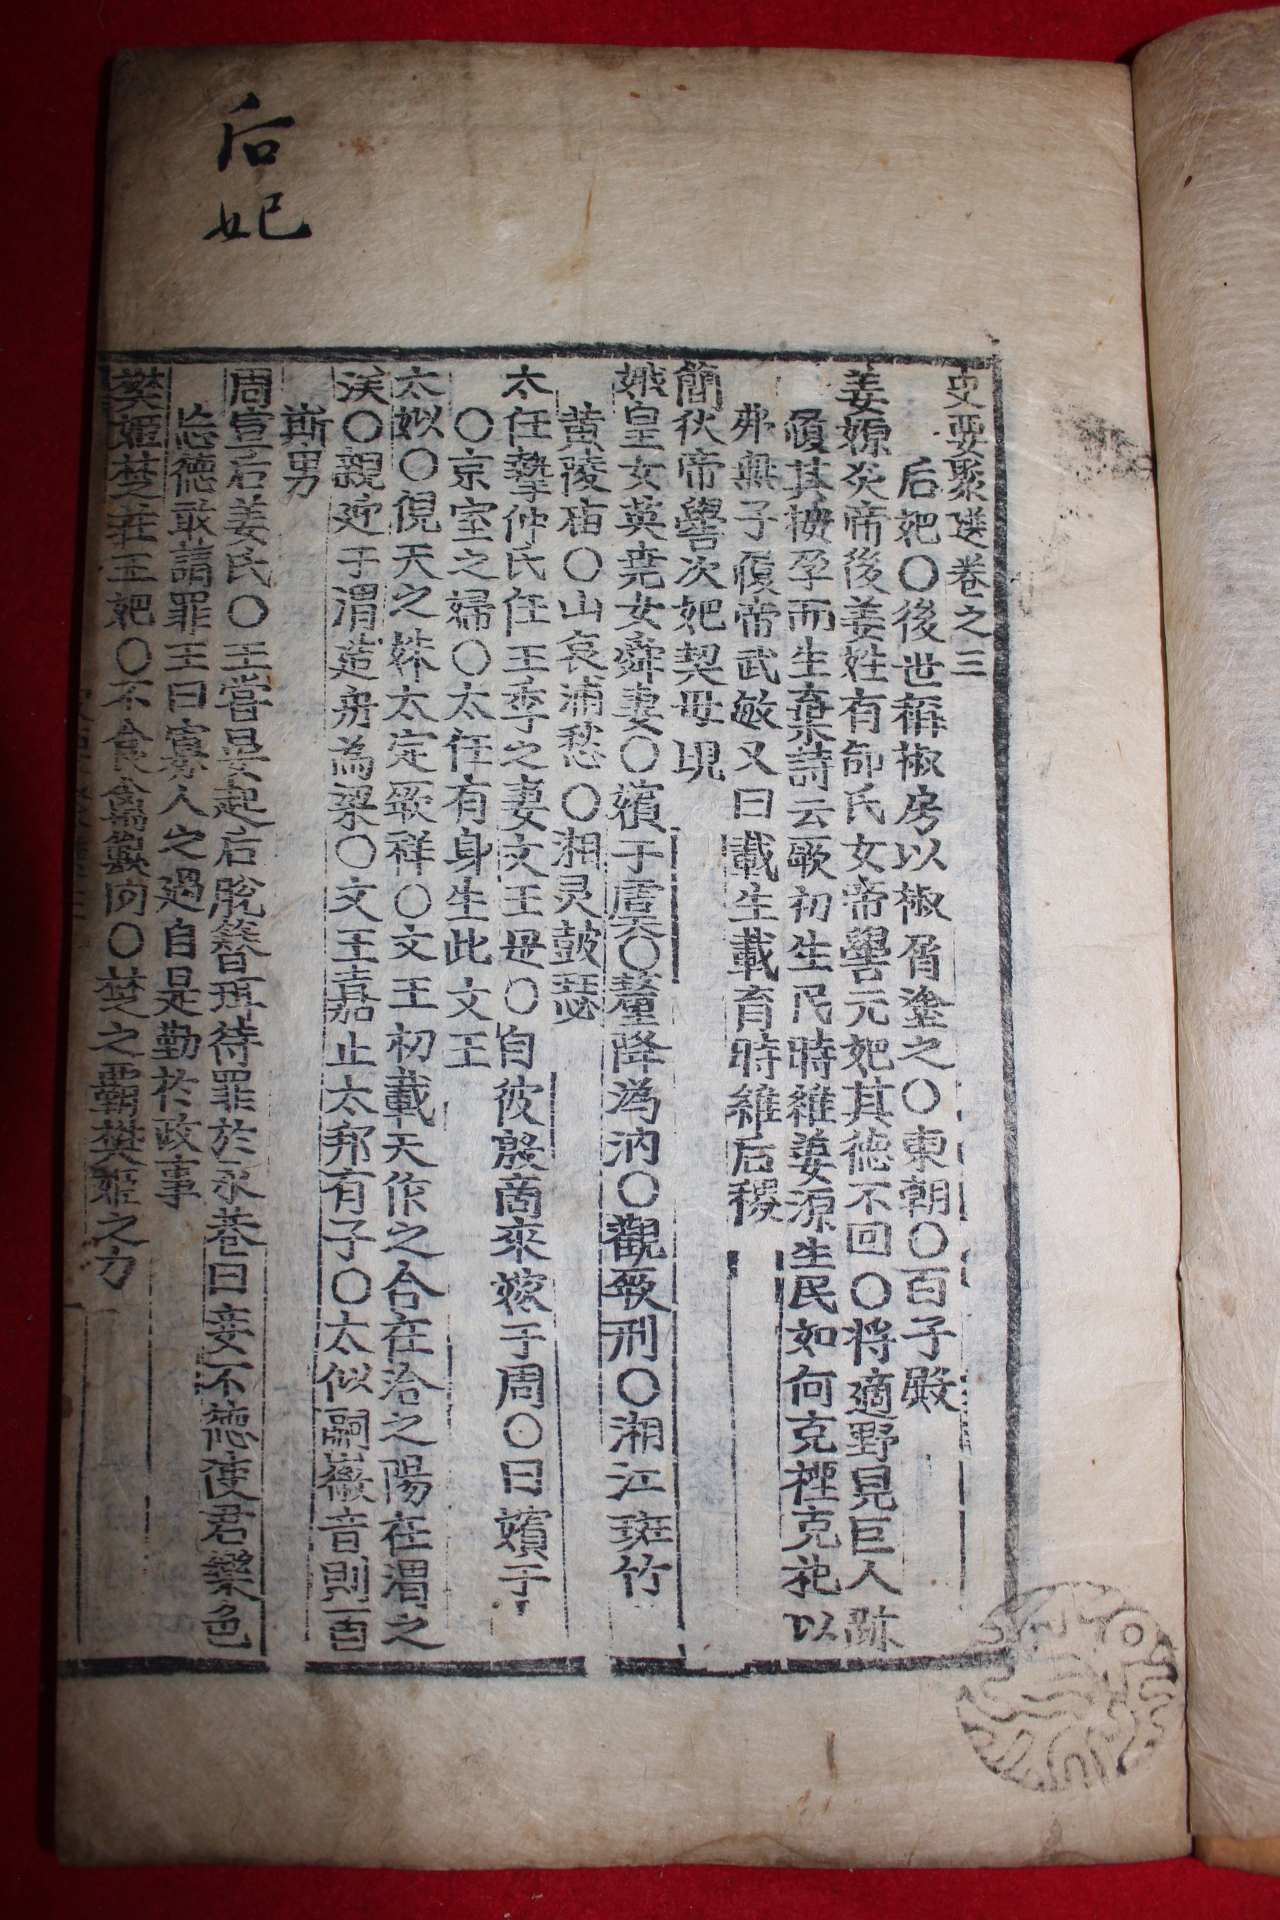 后妃
史要聚选卷之三
后妃〇後世稱椒房以椒屑塗之〇東朝〇百子殿
姜嫄炎帝後姜姓有邰氏女帝嚳元妃其德不回〇將適野見巨人跡
履其拇孕而生棄詩云厥初生民時維姜源生民如何克禋克祀以
弗無子履帝武敏又曰載生載育時維后稷
簡狄帝嚳次妃契母現
娥皇女英堯女舜妻〇嬪于虞〇釐降溈汭〇觀厥刑〇湘江斑竹
黃陵庙〇山哀浦愁〇湘灵鼓瑟
太任摯仲氏任王季之妻文王母〇自彼殷商來嫁于周〇曰嬪于
〇京室之婦〇太任有身生此文王
太姒〇俔天之妹太定厥祥〇文王初載天作之合在洽之陽在渭之
涘〇親迎于渭造舟為梁〇文王嘉止太邦有子〇太似嗣徽音則百
斯男
周宣后姜氏〇王嘗晏起后脫簪珥待罪於永巷曰妾不德使君樂色
忘德敢請罪王曰寡人之過自是勤於政事
樊姬楚莊王妃〇不食禽獸肉〇楚之霸樊姬之力